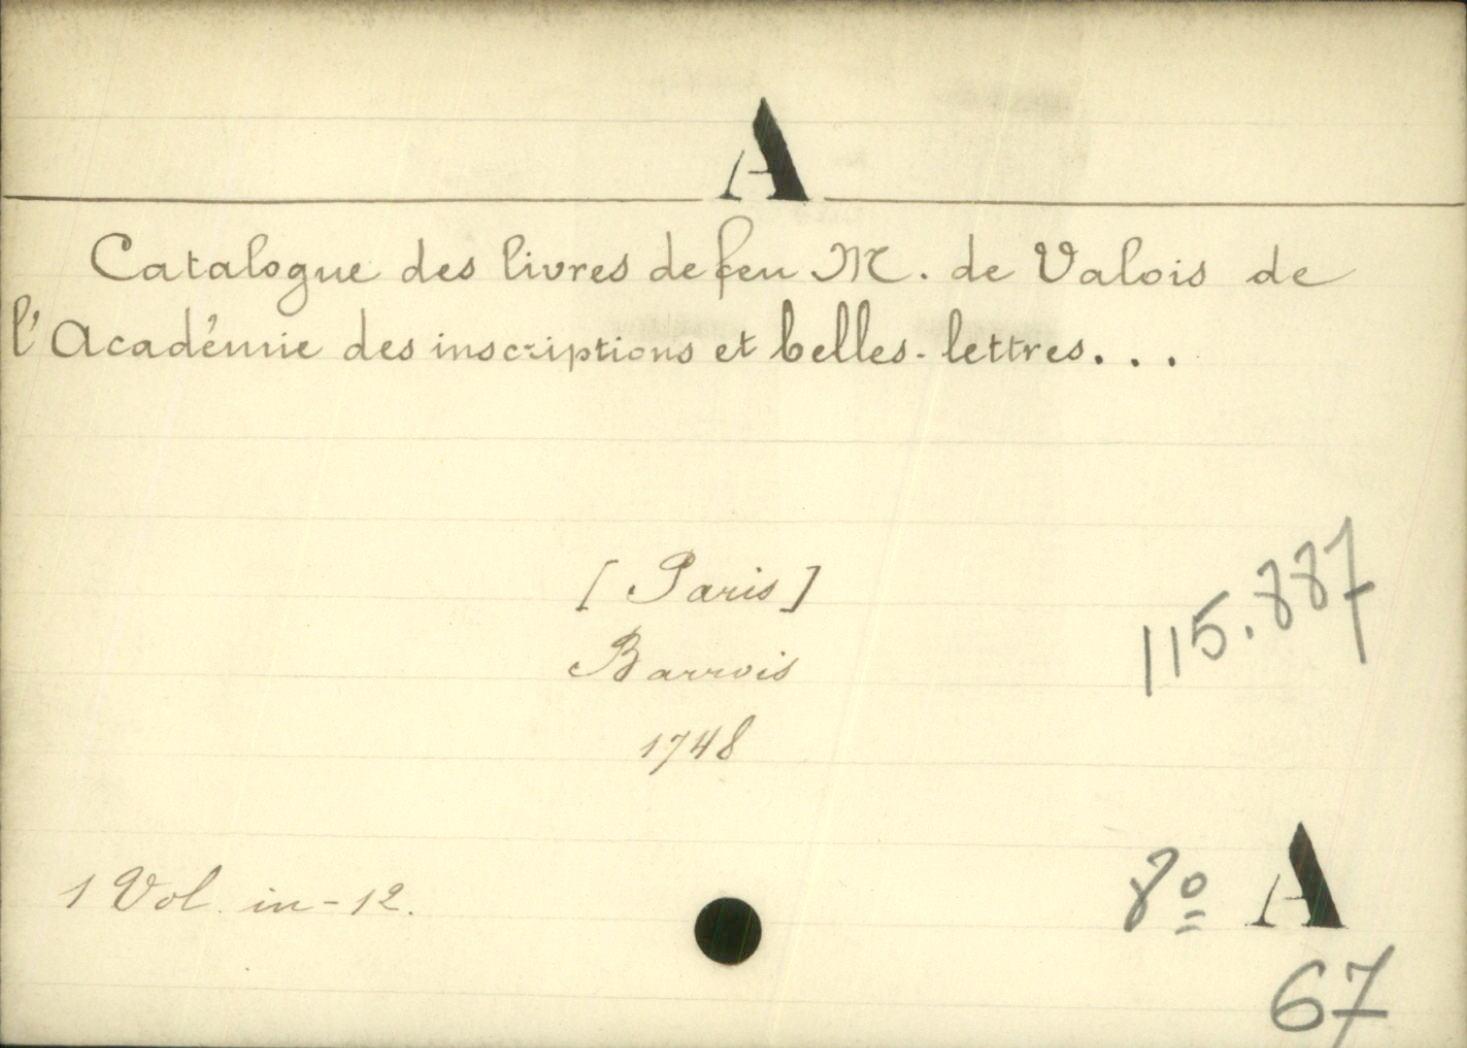 A
Catalogue des livres de feu M. de Valois de
l'Académie des inscriptions et belles-lettres...
[Paris]
Barrois
1748
115.887
1 Vol. in-12.
8º A
67